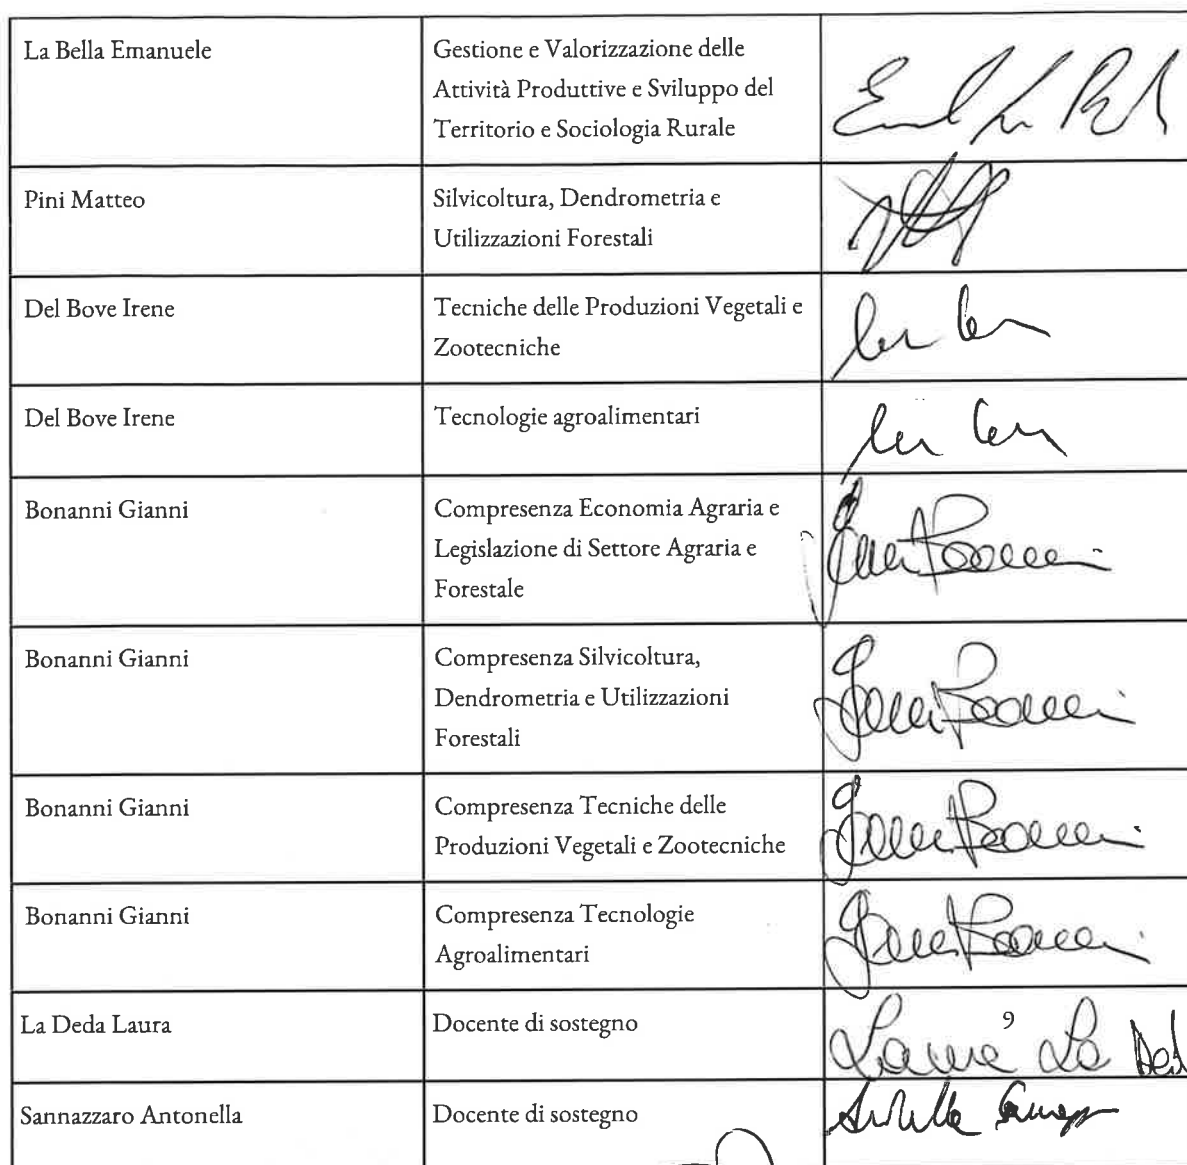 La Bella Emanuele
Gestione e Valorizzazione delle
Attività Produttive e Sviluppo del
Territorio e Sociologia Rurale
Pini Matteo
Silvicoltura, Dendrometria e
Utilizzazioni Forestali
Del Bove Irene
Tecniche delle Produzioni Vegetali e
Zootecniche
Del Bove Irene
Tecnologie agroalimentari
Bonanni Gianni
Compresenza Economia Agraria e
Legislazione di Settore Agraria e
Forestale
Bonanni Gianni
Compresenza Silvicoltura,
Dendrometria e Utilizzazioni
Forestali
Bonanni Gianni
Compresenza Tecniche delle
Produzioni Vegetali e Zootecniche
Bonanni Gianni
Compresenza Tecnologie
Agroalimentari
La Deda Laura
Docente di sostegno
9
Laura La Ded
Sannazzaro Antonella
Docente di sostegno